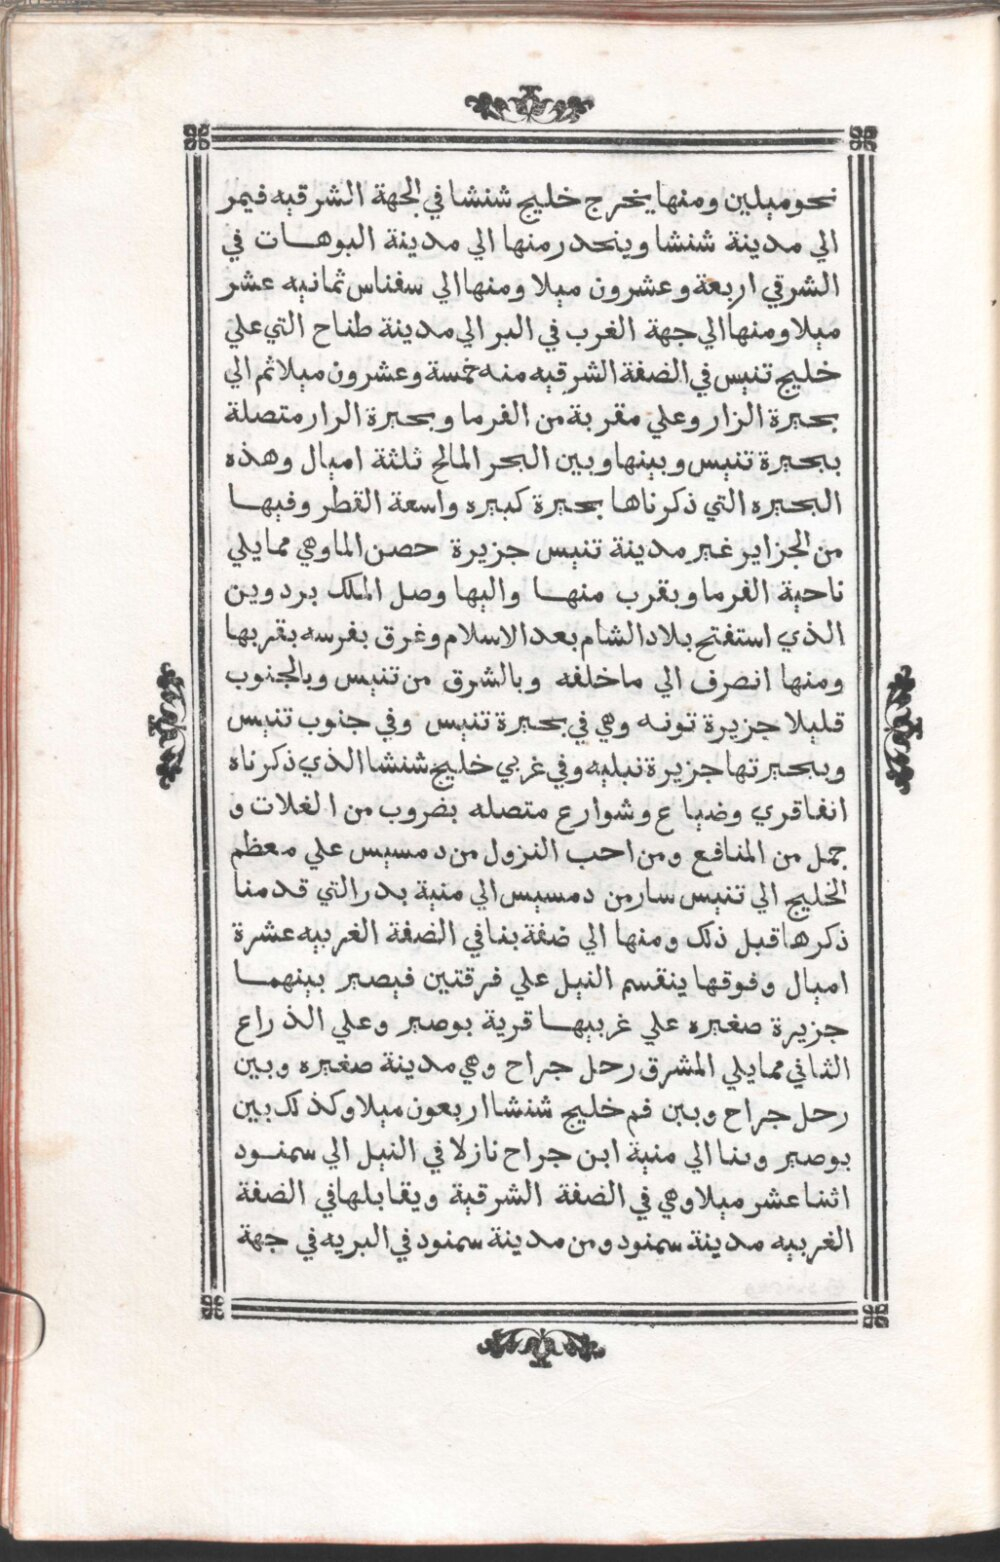 نحوميلين ومنها يخرج خليج شنشا في الجهة الشرقيه فيمر
الي مدينة شنشا وينحدر منها الي مدينة البوهات في
الشرقي اربعة وعشرون ميلا ومنها الي سفناس ثمانيه عشر
ميلا ومنها الي جهة الغرب في البر الي مدينة طناح التي علي
خليج تنيس في الضفة الشرقيه منه خمسة وعشرون ميلا ثم الي
بحيرة الزار وعلي مقربة من الفرما وبحيرة الزار متصلة
ببحيرة تنيس وبينها وبين البحر المالح ثلثة اميال وهذه
البحيره التي ذكرناها بحيرة كبيره واسعة القطر وفيها
من الجزاير غير مدينة تنيس جزيرة حصن الما وهي مما يلي
ناحية الفرما وبقرب منها واليها وصل الملك بردوين
الذي استفتح بلاد الشام بعد الاسلام وغرق بفرسه بقربها
ومنها انصرف الي ما خلفه وبالشرق من تنيس وبالجنوب
قليلا جزيرة تونه وهي في بحيرة تنيس وفي جنوب تنيس
وبحيرتها جزيرة نبليه وفي غربي خليج شنشا الذي ذكرناه
انفا قري وضياع وشوارع متصله بضروب من الغلات و
جمل من المنافع ومن احب النزول من دمسيس علي معظم
الخليج الي تنيس سار من دمسيس الي منية بدر التي قدمنا
ذكرها قبل ذلك ومنها الي ضفة بنا في الضفة الغربيه عشرة
اميال وفوقها ينقسم النيل علي فرقتين فيصير بينهما
جزيرة صغيره علي غربيها قرية بوصير وعلي الذراع
الثاني مما يلي المشرق رحل جراح وهي مدينة صغيره وبين
رحل جراح وبين فم خليج شنشا اربعون ميلا وكذلك بين
بوصير وبنا الي منية ابن جراح نازلا في النيل الي سمنود
اثنا عشر ميلا وهي في الضفة الشرقية ويقابلها في الضفة
الغربيه مدينة سمنود ومن مدينة سمنود في البريه في جهة